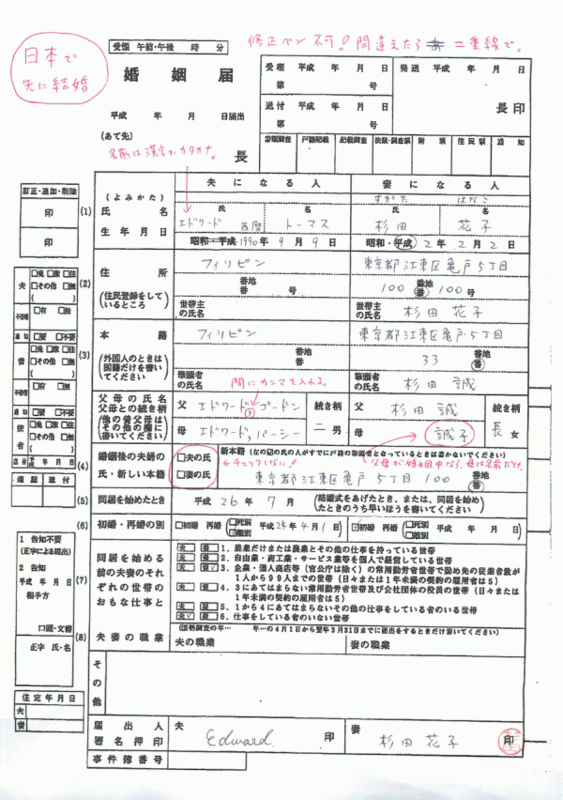 日本で
先に結婚
受領 午前・午後 時 分
修正ペン不可！間違えたら二重線で。
婚姻届
平成 年 月 日届出
(あて先)
長
名前は漢字かカタカナ。
受理 平成 年 月 日
第 号
送付 平成 年 月 日
第 号
発送 平成 年 月 日
長印
書類調査 戸籍記載 記載調査 附票 住民票 通知
訂正・追加・削除
印
印
夫になる人 妻になる人
(1) (よみかた) すぎた はなこ
氏名 氏 名 氏 名
エドワード トーマス 杉田 花子
生年月日 昭和・平成 西暦 1990年9月9日 昭和・平成 2年2月2日
(2) 住所 フィリピン 東京都江東区亀戸5丁目
(住民登録をしているところ) 番地 番 号 100 番地 番 100号
世帯主の氏名 世帯主の氏名 杉田花子
(3) 本籍 フィリピン 東京都江東区亀戸5丁目
(外国人のときは国籍だけを書いてください) 番地 番 33 番地 番
筆頭者の氏名 筆頭者の氏名 杉田誠
間にカンマを入れる。
父母の氏名
父母との続き柄
(他の養父母はその他の欄に書いてください)
父 エドワード，ゴードン 続き柄 父 杉田 誠 続き柄
母 エドワード，パーシー 二男 母 誠子 長女
(4) 婚姻後の夫婦の氏・新しい本籍
□夫の氏
□妻の氏
新本籍 (左の☑の氏の人がすでに戸籍の筆頭者となっているときは書かないでください)
←チェックしない！
父母が婚姻中なら、母は名前だけ。
東京都江東区亀戸5丁目100
(5) 同居を始めたとき 平成26年7月 (結婚式をあげたとき、または、同居を始めたときのうち早いほうを書いてください)
(6) 初婚・再婚の別 □初婚 再婚(□死別 □離別 平成24年4月1日) ☑初婚 再婚(□死別 □離別 年 月 日)
(7) 同居を始める前の夫妻のそれぞれの世帯のおもな仕事と
夫 妻 1. 農業だけまたは農業とその他の仕事を持っている世帯
夫 妻 2. 自由業・商工業・サービス業等を個人で経営している世帯
夫 妻 3. 企業・個人商店等（官公庁は除く）の常用勤労者世帯で勤め先の従業者数が1人から99人までの世帯（日々または1年未満の契約の雇用者は5）
夫 妻 4. 3にあてはまらない常用勤労者世帯及び会社団体の役員の世帯（日々または1年未満の契約の雇用者は5）
夫 妻 5. 1から4にあてはまらないその他の仕事をしている者のいる世帯
夫 妻 6. 仕事をしている者のいない世帯
(8) 夫妻の職業
(国勢調査の年… 年…の4月1日から翌年3月31日までに届出をするときだけ書いてください)
夫の職業 妻の職業
1 告知不要
(正字による届出)
2 告知
平成 年 月 日
相手方
口頭・文書
正字 氏・名
住定年月日
夫
妻
その他
届出人
署名押印
夫 Edward 印 妻 杉田 花子 印
事件簿番号